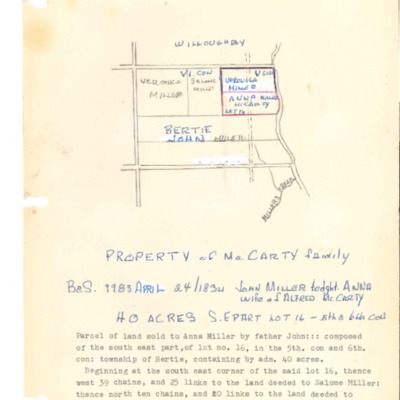 WILLOUGHBY
VI. CON
V CON
VERONICA
MILLER
SALOME
VERONICA
MILLER
ANNA
McCARTY
LOT 16
BERTIE
JOHN MILLER
MILLERS CREEK
PROPERTY of McCARTY family
B&S. 9983 APRIL 24/1834 JOHN MILLER to dght. ANNA
wife of ALFRED McCARTY
40 ACRES S.E PART LOT 16 - 5th & 6th CON
Parcel of land sold to Anna Miller by father John::: composed
of the south east part,of lot no. 16, in the 5th. con and 6th.
con: township of Bertie, containing by adm. 40 acres.
Beginning at the south east corner of the said lot 16, thence
west 39 chains, and 25 links to the land deeded to Salome Miller:
thence north ten chains, and 20 links to the land deeded to